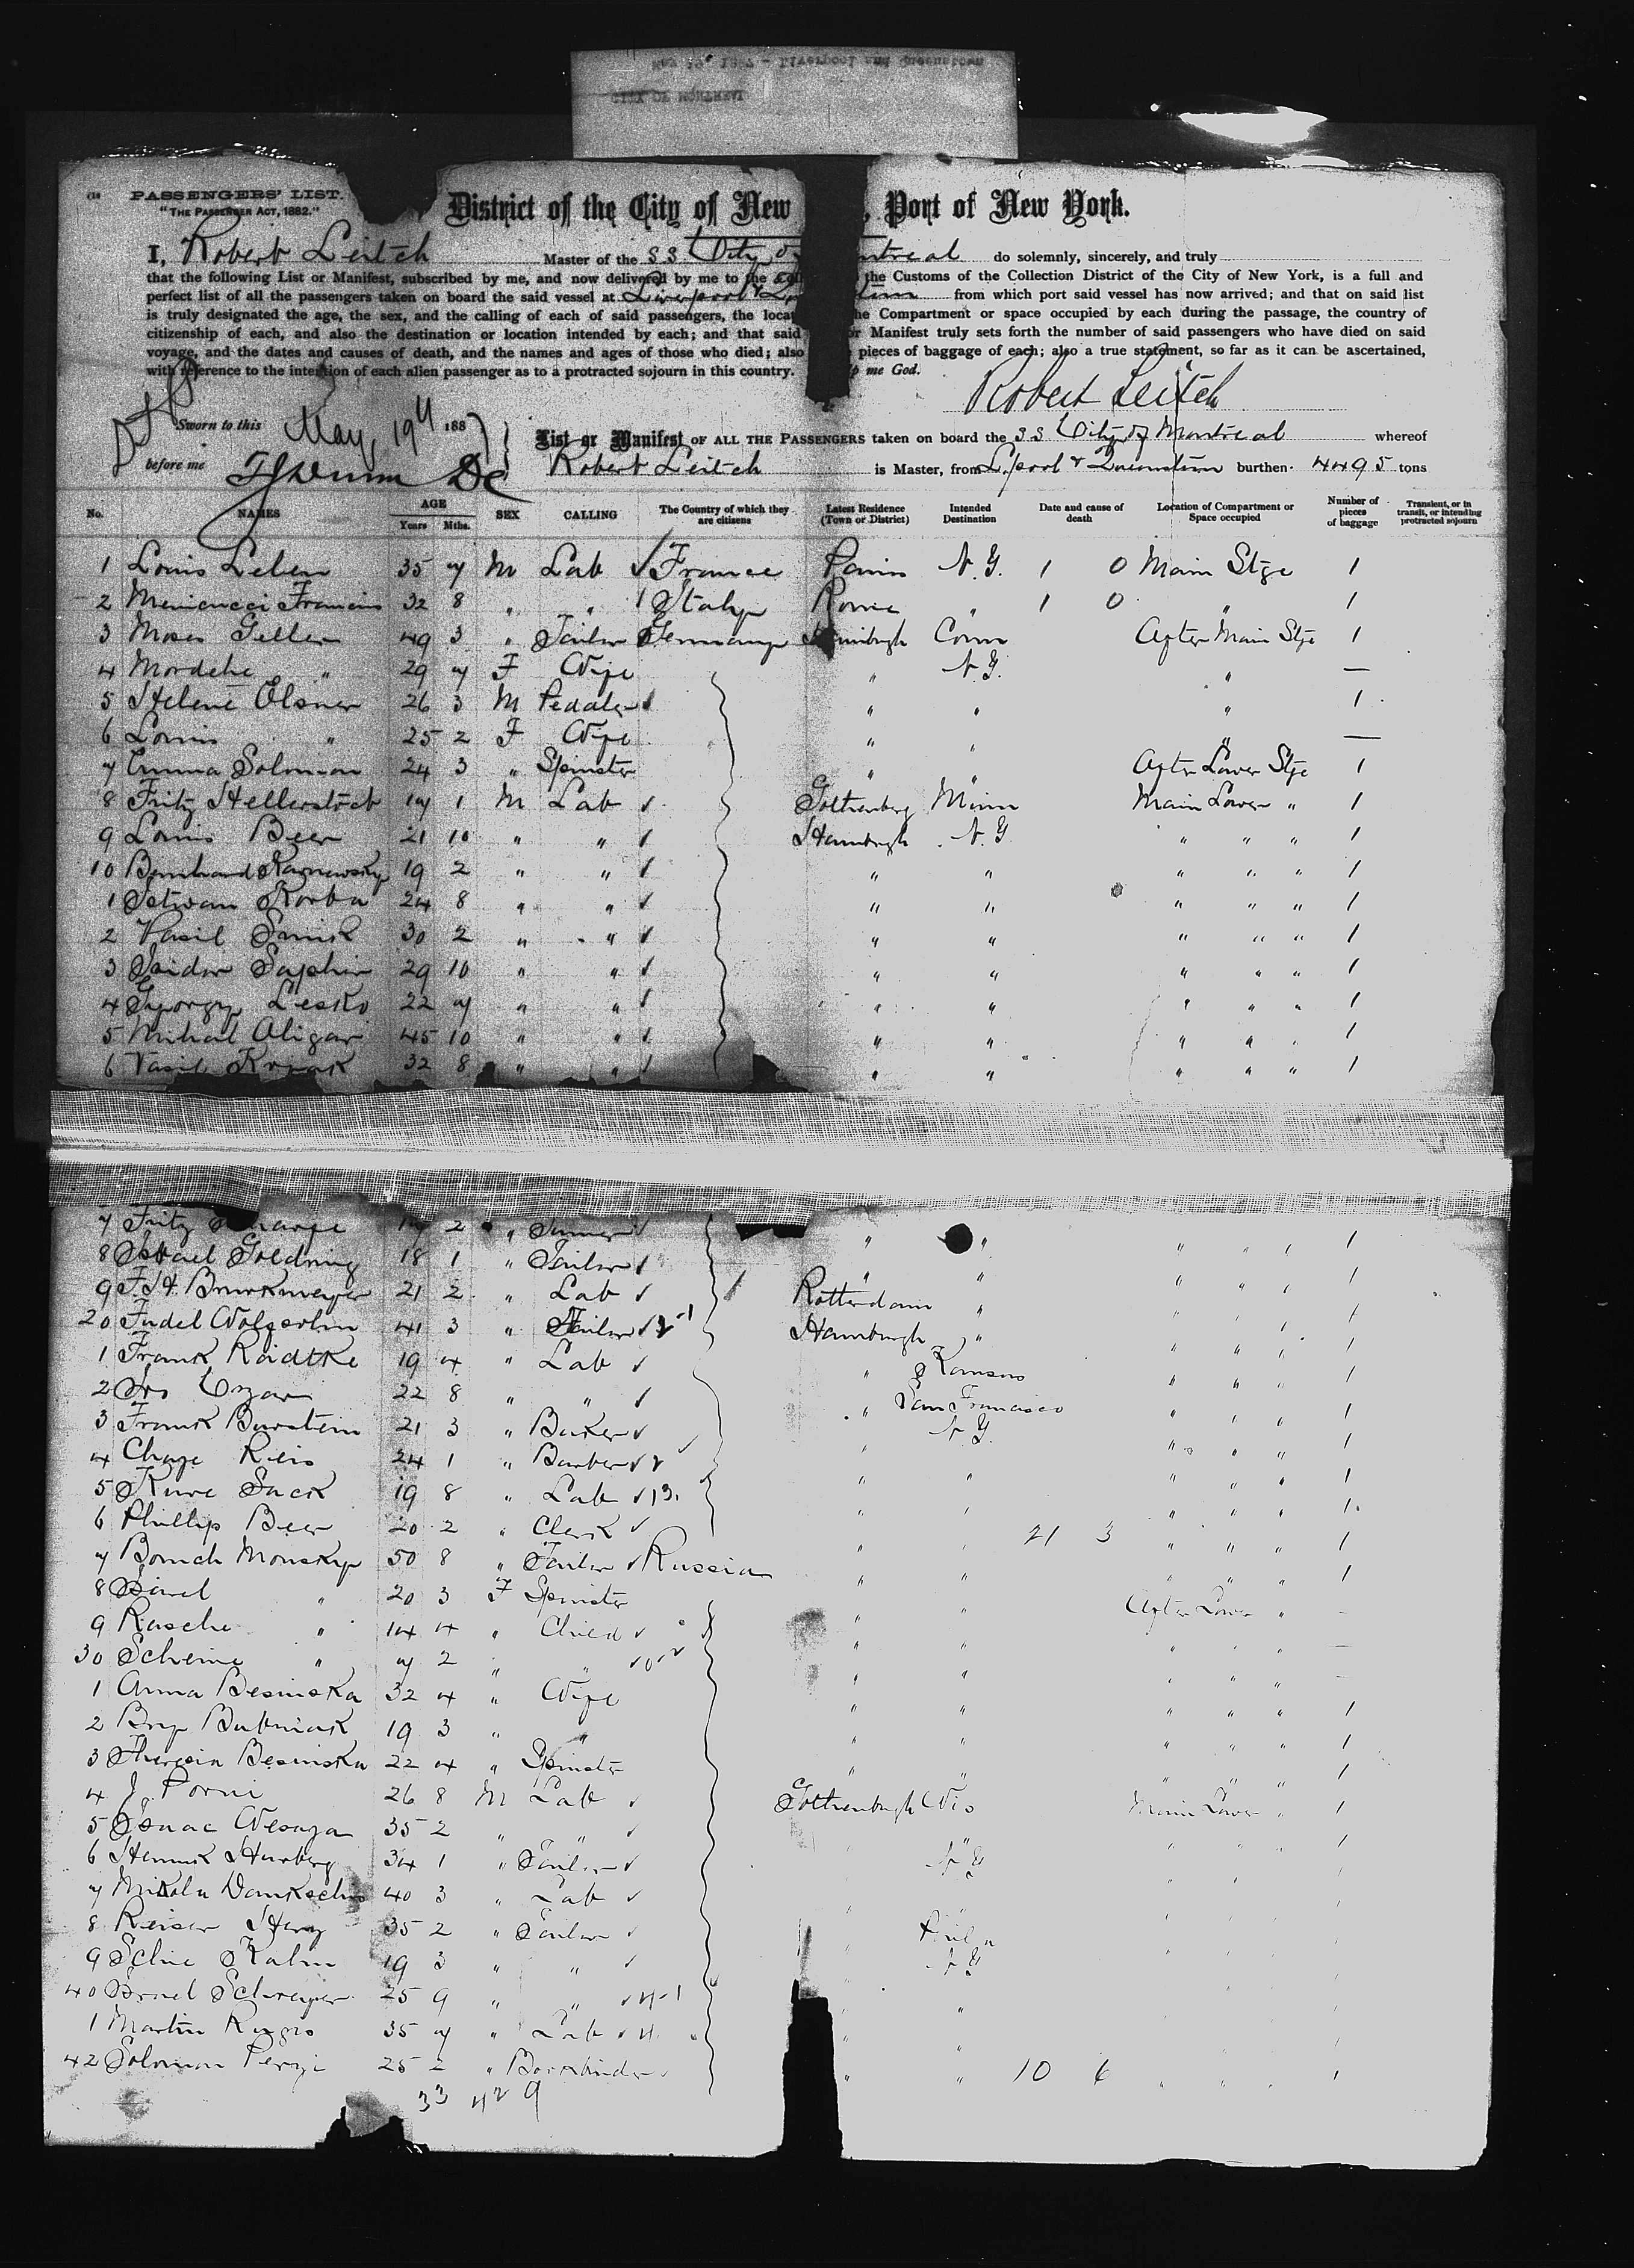 May 19" 1887 - Liverpool and Queenstown
CITY OF MONTREAL
PASSENGERS' LIST.
"THE PASSENGER ACT, 1882."
District of the City of New , Port of New York.
I, Robert Leitch Master of the SS City of ntreal do solemnly, sincerely, and truly
that the following List or Manifest, subscribed by me, and now delivered by me to the the Customs of the Collection District of the City of New York, is a full and
perfect list of all the passengers taken on board the said vessel at Liverpool & from which port said vessel has now arrived; and that on said list
is truly designated the age, the sex, and the calling of each of said passengers, the loca he Compartment or space occupied by each during the passage, the country of
citizenship of each, and also the destination or location intended by each; and that said or Manifest truly sets forth the number of said passengers who have died on said
voyage, and the dates and causes of death, and the names and ages of those who died; also pieces of baggage of each; also a true statement, so far as it can be ascertained,
with reference to the intention of each alien passenger as to a protracted sojourn in this country. p me God.
Robert Leitch
Sworn to this May, 19th 1887
before me
List or Manifest OF ALL THE PASSENGERS taken on board the SS City of Montreal whereof
Robert Leitch is Master, from L'pool & Queenstown burthen 4495 tons
No. NAMES AGE Years Mths. SEX CALLING The Country of which they are citizens Latest Residence (Town or District) Intended Destination Date and cause of death Location of Compartment or Space occupied Number of pieces of baggage Transient, or in transit, or intending protracted sojourn
1 Louis Leben 35 7 M Lab France Paris N.Y. 1 0 Main Stge 1
2 Menicucci Francis 32 8 " " Italy Rome " 1 0 " 1
3 Moses Geller 49 3 " Tailor Germany Hamburgh Conn After Main Stge 1
4 Mordche " 29 7 F Wife " N.Y. " —
5 Helene Olsner 26 3 M Pedaler " " " 1
6 Louis " 25 2 F Wife " " " —
7 Emma Solomon 24 3 " Spinster " " After Lower Stge 1
8 Fritz Hellerstock 17 1 M Lab Gothenberg Minn Main Lower " 1
9 Louis Beer 21 10 " " Hamburgh N.Y " " " 1
10 Bernhard Karnowsky 19 2 " " " " " " " 1
1 Istwan Korba 24 8 " " " " " " " 1
2 Vasil Simik 30 2 " " " " " " " 1
3 Isidor Saphir 29 10 " " " " " " " 1
4 Gyorgy Lesko 22 7 " " " " " " " 1
5 Mihal Aligar 45 10 " " " " " " " 1
6 Vasil Kopak 32 8 " " " " " " " 1
7 Fritz 17 2 " " " " " " 1
8 Israel Goldring 18 1 " Tailor " " " " " 1
9 F.H. Brinkmeyer 21 2 " Lab Rotterdam " " " " 1
20 Judel Wolfsohn 41 3 " Tailor Hamburgh " " " " 1
1 Frank Raidtke 19 4 " Lab " Kansas " " " 1
2 Jos Czar 22 8 " " " San Francisco " " " 1
3 Frank Burstein 21 3 " Baker " N.Y. " " " 1
4 Chaje Reis 24 1 " Barber " " " " " 1
5 Kure Sack 19 8 " Lab " " " " " 1
6 Phillip Beer 20 2 " Clerk " " 21 3 " " " 1
7 Boruch Monsky 50 8 " Tailor Russia " " " " " 1
8 " 20 3 F Spinster " " After Lower " -
9 Rasche " 14 4 " Child " " " " " -
30 Scheine " 7 2 " " " " " " " -
1 Anna Besinska 32 4 " Wife " " " " " 1
2 Bry Bubniak 19 3 " " " " " " " 1
3 Theresia Besinska 22 4 " Spinster " " " " " 1
4 J. Porni 26 8 M Lab Gothenburgh Wis Main Lower " 1
5 Isaac Wesaya 35 2 " " " " " " " 1
6 Hennik Hurberg 34 1 " Tailor " N.Y " " " 1
7 Mikola 40 3 " Lab " " " " "
8 Reiser Herz 35 2 " Tailor " " " "
9 Kalm 19 3 " " " N.Y " " "
40 Israel Schreyer 25 9 " " " " " " "
1 Martin 35 7 " Lab " " " " "
42 Solomon 25 2 " Bookbinder " " 10 6 " " " 1
33 42 9